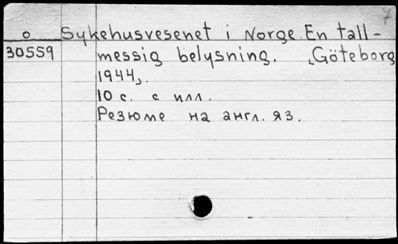 7
o Sykehusvesenet i Norge En tall-
30559 messig belysning. [Göteborg
1944].
10 с. с илл.
Резюме на англ. яз.